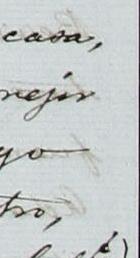 casa,
nejir
go
tro,